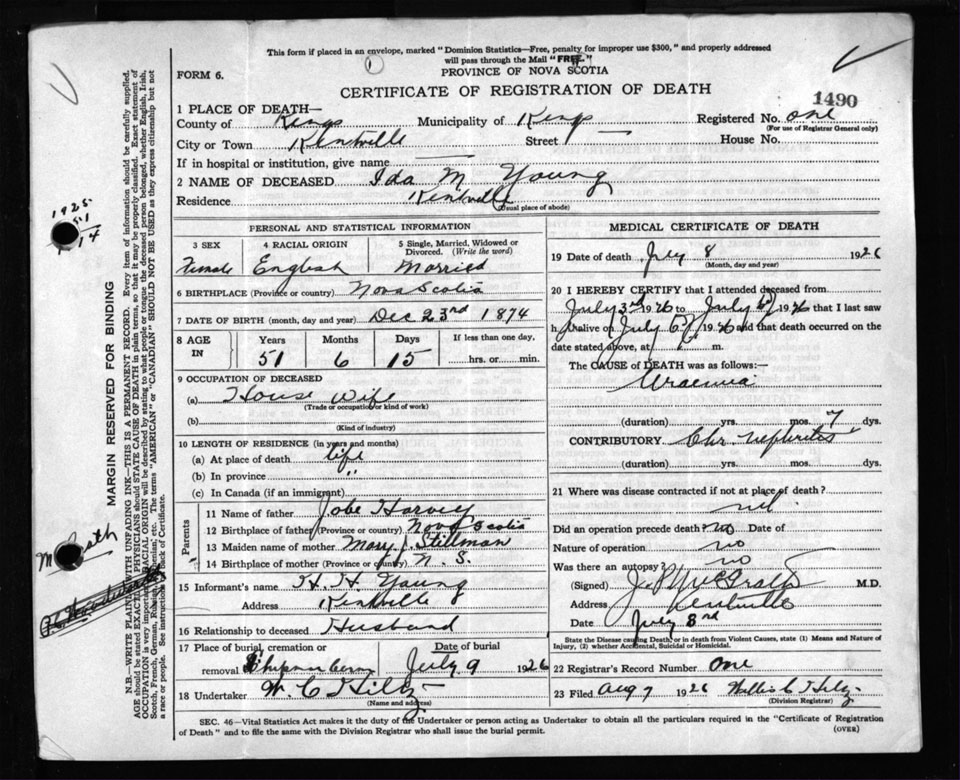 This form if placed in an envelope, marked "Dominion Statistics—Free, penalty for improper use $300," and properly addressed
will pass through the Mail "FREE."
PROVINCE OF NOVA SCOTIA
FORM 6.
CERTIFICATE OF REGISTRATION OF DEATH
1490
1 PLACE OF DEATH—
County of Kings Municipality of Kings Registered No. one
(For use of Registrar General only)
City or Town Kentville Street — House No.
If in hospital or institution, give name —
2 NAME OF DECEASED Ida M Young
Residence Kentville
(Usual place of abode)
PERSONAL AND STATISTICAL INFORMATION
3 SEX 4 RACIAL ORIGIN 5 Single, Married, Widowed or Divorced. (Write the word)
Female English Married
6 BIRTHPLACE (Province or country) Nova Scotia
7 DATE OF BIRTH (month, day and year) Dec 23rd 1874
8 AGE IN Years Months Days If less than one day,
51 6 15 hrs. or min.
9 OCCUPATION OF DECEASED
(a) House Wife
(Trade or occupation or kind of work)
(b)
(Kind of industry)
10 LENGTH OF RESIDENCE (in years and months)
(a) At place of death life
(b) In province "
(c) In Canada (if an immigrant)
Parents
11 Name of father Jobe Harvey
12 Birthplace of father (Province or country) Nova Scotia
13 Maiden name of mother Mary Stillman
14 Birthplace of mother (Province or country) N. S.
15 Informant's name H. H. Young
Address Kentville
16 Relationship to deceased Husband
17 Place of burial, cremation or removal Date of burial
July 9 1926
18 Undertaker W. C Hiltz
(Name and address)
MEDICAL CERTIFICATE OF DEATH
19 Date of death July 8 1926
(Month, day and year)
20 I HEREBY CERTIFY that I attended deceased from
July 3rd 1926 to July 1926 that I last saw
h alive on July 1926 and that death occurred on the
date stated above, at m.
The CAUSE of DEATH was as follows:—
Uraemia
(duration) yrs. mos. 7 dys.
CONTRIBUTORY Chr Nephritis
(duration) yrs. mos. dys.
21 Where was disease contracted if not at place of death?
Did an operation precede death? no Date of
Nature of operation no
Was there an autopsy? no
(Signed) M.D.
Address Kentville
Date July 8rd
State the Disease causing Death, or in death from Violent Causes, state (1) Means and Nature of
Injury, (2) whether Accidental, Suicidal or Homicidal.
22 Registrar's Record Number One
23 Filed Aug 7 1926 Willis C Hiltz
(Division Registrar)
SEC. 46—Vital Statistics Act makes it the duty of the Undertaker or person acting as Undertaker to obtain all the particulars required in the "Certificate of Registration
of Death" and to file the same with the Division Registrar who shall issue the burial permit.
(OVER)
MARGIN RESERVED FOR BINDING
N.B.—WRITE PLAINLY WITH UNFADING INK—THIS IS A PERMANENT RECORD. Every item of information should be carefully supplied.
AGE should be stated EXACTLY. PHYSICIANS should STATE CAUSE OF DEATH in plain terms, so that it may be properly classified. Exact statement of
OCCUPATION is very important. RACIAL ORIGIN will be described by stating to what people or tongue the deceased person belonged, whether English, Irish,
Scotch, French, German, Russian, Ruthenian, etc. The terms "AMERICAN" or "CANADIAN" SHOULD NOT BE USED as they express citizenship but not
a race or people. See instructions on Back of Certificate.
1925
51